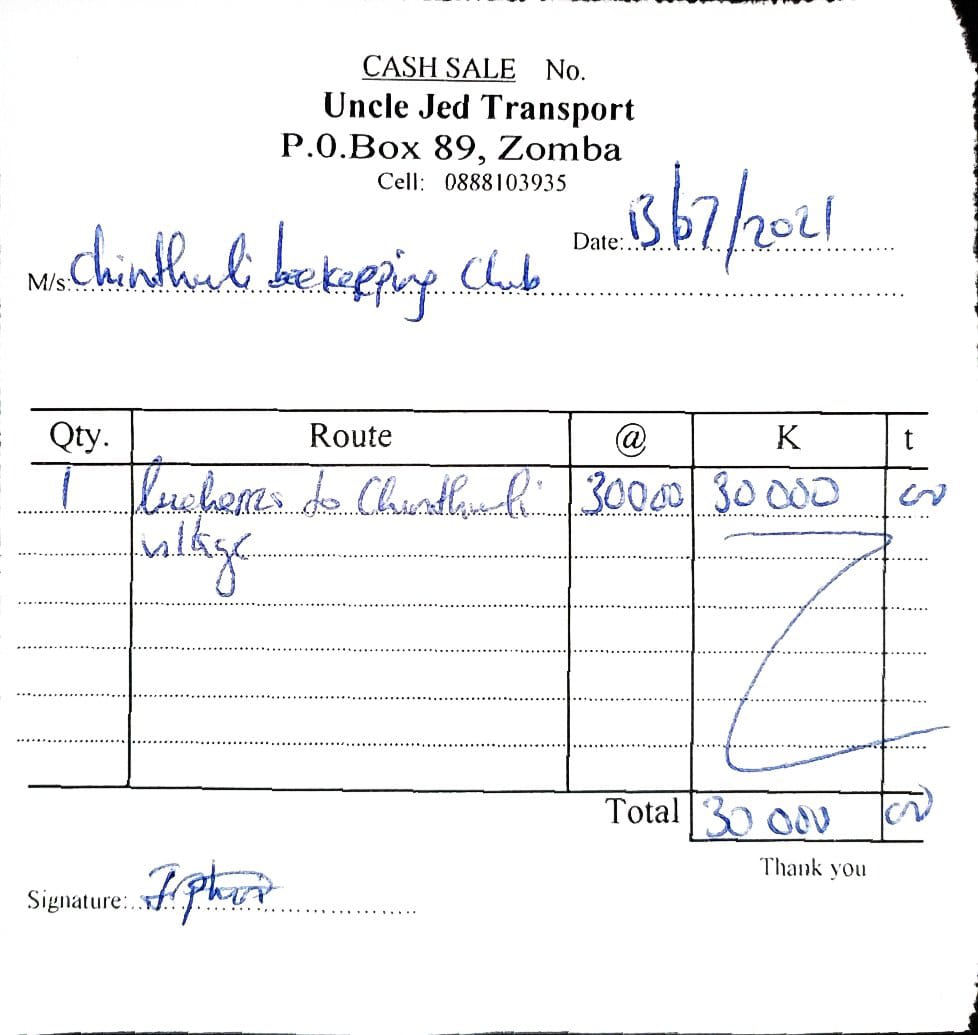 CASH SALE No.
Uncle Jed Transport
P.O.Box 89, Zomba
Cell: 0888103935
Date: 13/07/2021
M/s: Chinthuli beekepping Club
Qty. Route @ K t
1 to Chinthuli 30000 30 000 00
village
Total 30 000 00
Thank you
Signature: